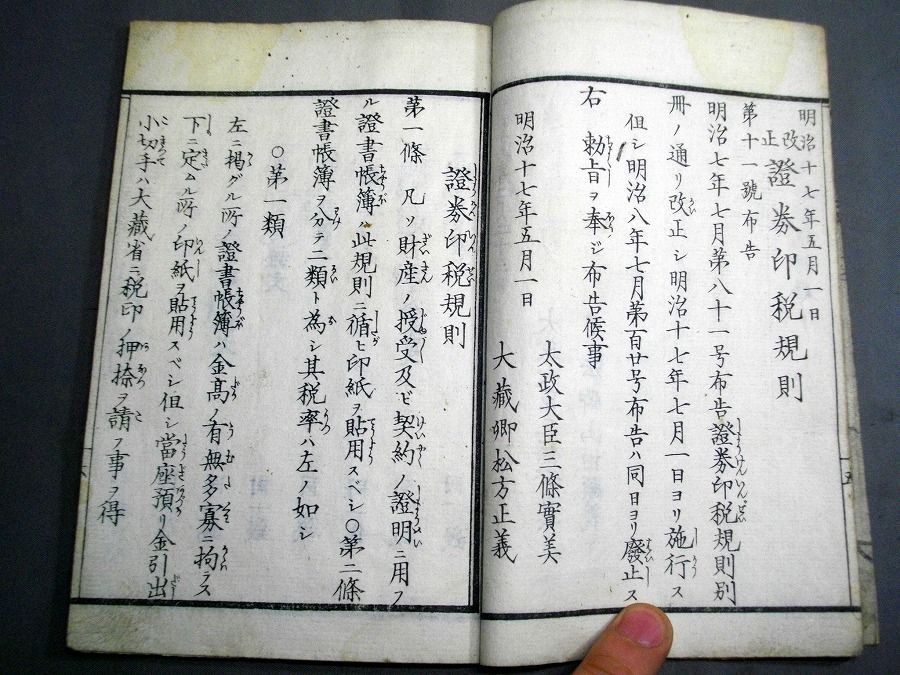 明治十七年五月一日
改正 證券印税規則
第十一號布告
明治七年七月第八十一号布告證券印税規則別
冊ノ通リ改正シ明治十七年七月一日ヨリ施行ス
但シ明治八年七月第百廿号布告ハ同日ヨリ廢止ス
右 勅旨ヲ奉ジ布告候事
太政大臣三條實美
明治十七年五月一日
大藏卿松方正義
證券印税規則
第一條 凡ソ財産ノ授受及ビ契約ノ證明ニ用フ
ル證書帳簿ハ此規則ニ循ヒ印紙ヲ貼用スベシ○第二條
證書帳簿ヲ分テ二類ト為シ其税率ハ左ノ如シ
○第一類
左ニ掲グル所ノ證書帳簿ハ金高ノ有無多寡ニ拘ラス
下ニ定ムル所ノ印紙ヲ貼用スベシ但シ當座預リ金引出
小切手ハ大藏省ニ税印ノ押捺ヲ請フ事ヲ得